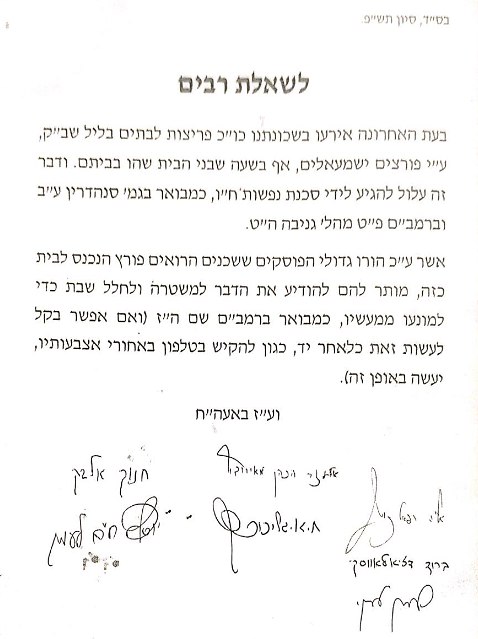 בס״ד, סיון תש״פ.
לשאלת רבים
בעת האחרונה אירעו בשכונתנו כו״כ פריצות לבתים בליל שב״ק,
ע״י פורצים ישמעאלים, אף בשעה שבני הבית שהו בביתם. ודבר
זה עלול להגיע לידי סכנת נפשות ח״ו, כמבואר בגמ׳ סנהדרין ע״ב
וברמב״ם פ״ט מהל׳ גניבה ה״ט.
אשר ע״כ הורו גדולי הפוסקים ששכנים הרואים פורץ הנכנס לבית
כזה, מותר להם להודיע את הדבר למשטרה ולחלל שבת כדי
למונעו ממעשיו, כמבואר ברמב״ם שם ה״ז (ואם אפשר בקל
לעשות זאת כלאחר יד, כגון להקיש בטלפון באחורי אצבעותיו,
יעשה באופן זה).
וע״ז באעה״ח
אלעזר הכהן
חנוך אלבק
ברוך
חיים